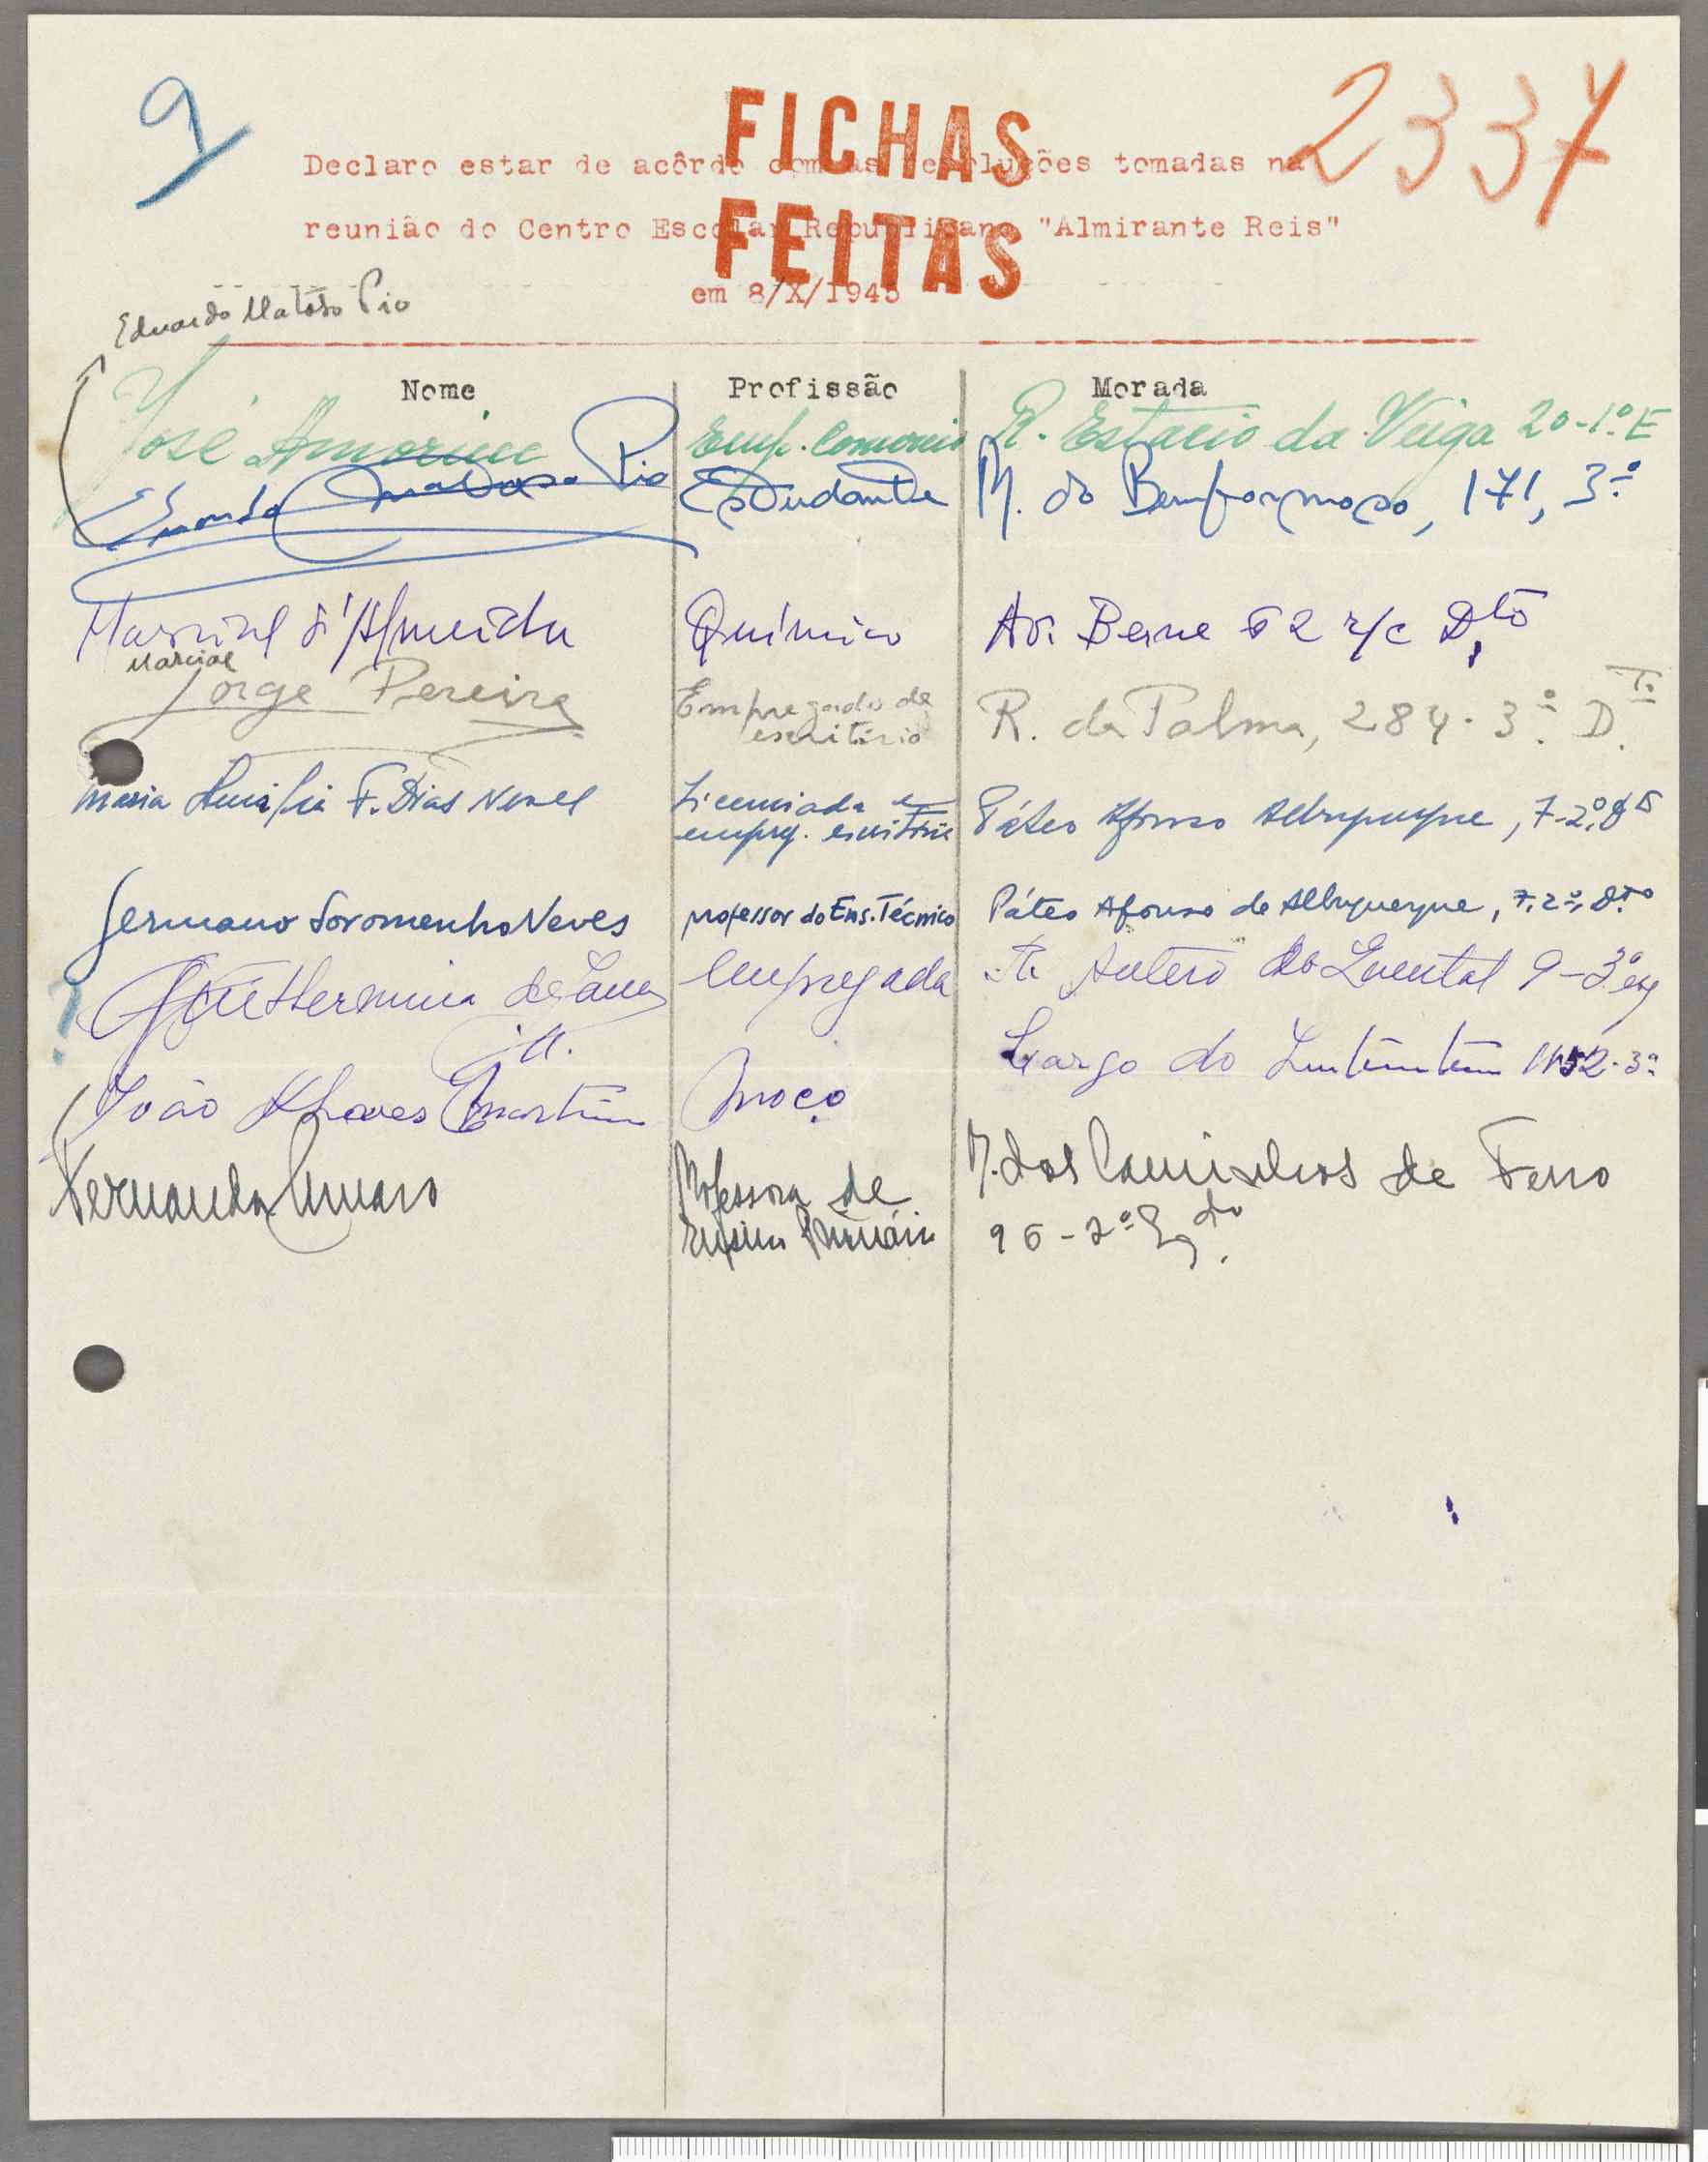 9
FICHAS
2337
Declaro estar de acôrdo com as resoluções tomadas na
FEITAS
reunião do Centro Escolar Republicano "Almirante Reis"
em 8/X/1945
Eduardo Matôso Pio
Nome Profissão Morada
José Amorim Emp. Comercio R. Estacio da Veiga 20-1.º E
Eduardo Matoso Pio Estudante R. do Benformoso, 171, 3.º
Marcial d'Almeida Químico Av. Berne 52 r/c Dto
Marcial
Jorge Pereira Empregado de R. da Palma, 284-3.º D.to
escritório
Maria F. Dias Neves Licenciada e Páteo Afonso Albuquerque, 7-2.º
empreg. escritório
Germano Soromenho Neves professor do Ens. Técnico Páteo Afonso de Albuquerque, 7, 2.º, Dto
? Empregada Antero do Quental 9-3º esq
Largo do 3º
João Chaves Martins Moço
Fernanda Amaro Professora de R. dos Caminhos de Ferro
Ensino Primário 96-2º Esqdo.